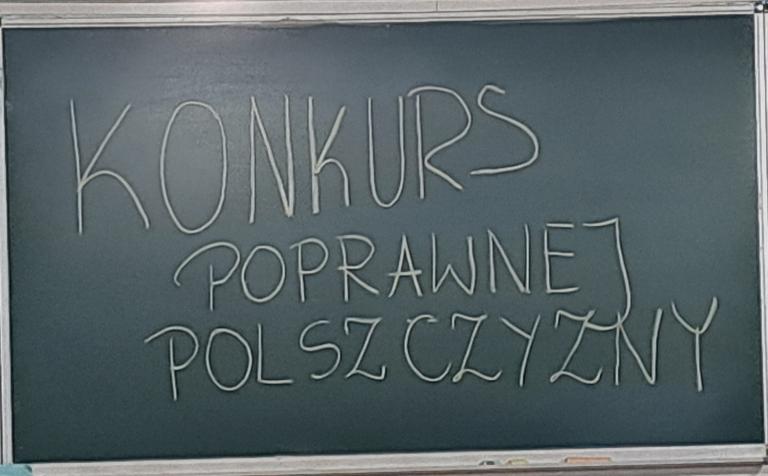 KONKURS
POPRAWNEJ
POLSZCZYZNY